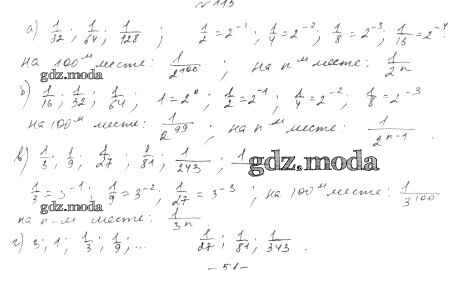 № 113
а) 1/32 ; 1/64 ; 1/128 ; 1/2 = 2⁻¹ ; 1/4 = 2⁻² ; 1/8 = 2⁻³ ; 1/16 = 2⁻⁴
на 100ᵐ месте: 1/2¹⁰⁰ ; на nᵐ месте: 1/2ⁿ
gdz.moda
б) 1/16 ; 1/32 ; 1/64 ; 1 = 2⁰ ; 1/2 = 2⁻¹ ; 1/4 = 2⁻² ; 1/8 = 2⁻³
на 100ᵐ месте: 1/2⁹⁹ ; на nᵐ месте: 1/2ⁿ⁻¹ .
в) 1/3 ; 1/9 ; 1/27 ; 1/81 ; 1/243 ;
gdz.moda
1/3 = 3⁻¹ ; 1/9 = 3⁻² ; 1/27 = 3⁻³ ; на 100ᵐ месте: 1/3¹⁰⁰
gdz.moda
на n-м месте: 1/3ⁿ
г) 3 ; 1 ; 1/3 ; 1/9 ; ... 1/27 ; 1/81 ; 1/343 .
– 51 –